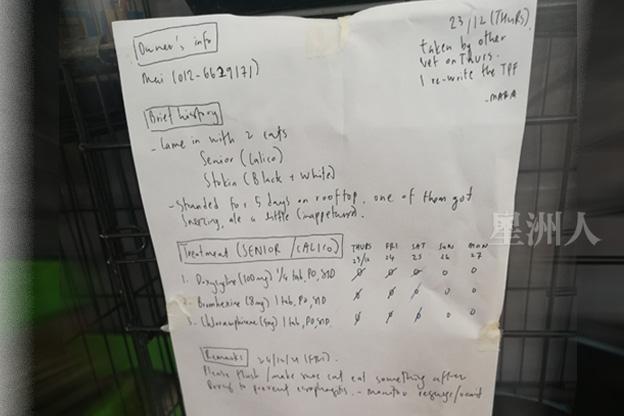 Owner's info
Mei (012-6629171)
23/12 (THURS)
taken by other
vet on Thurs.
I re-write the TPF
Brief history
- Came in with 2 cats
Senior (Calico)
Stokin (Black + White)
- Stranded for 5 days on rooftop, one of them got
sneezing, ate a little (inappetence).
Treatment (SENIOR / CALICO) THURS FRI SAT SUN MON
23/12 24 25 26 27
1. Doxycycline (100mg) 1/4 tab, PO, SID 0 0 0 0 0
2. Bromhexine (8mg) 1 tab, PO, SID 0 0 0 0 0
3. (4mg) 1 tab, PO, SID 0 0 0 0 0
Remarks 24/12/21 (FRI).
Please flush / make sure cat eat something after
to prevent esophagitis. - monitor
星洲人